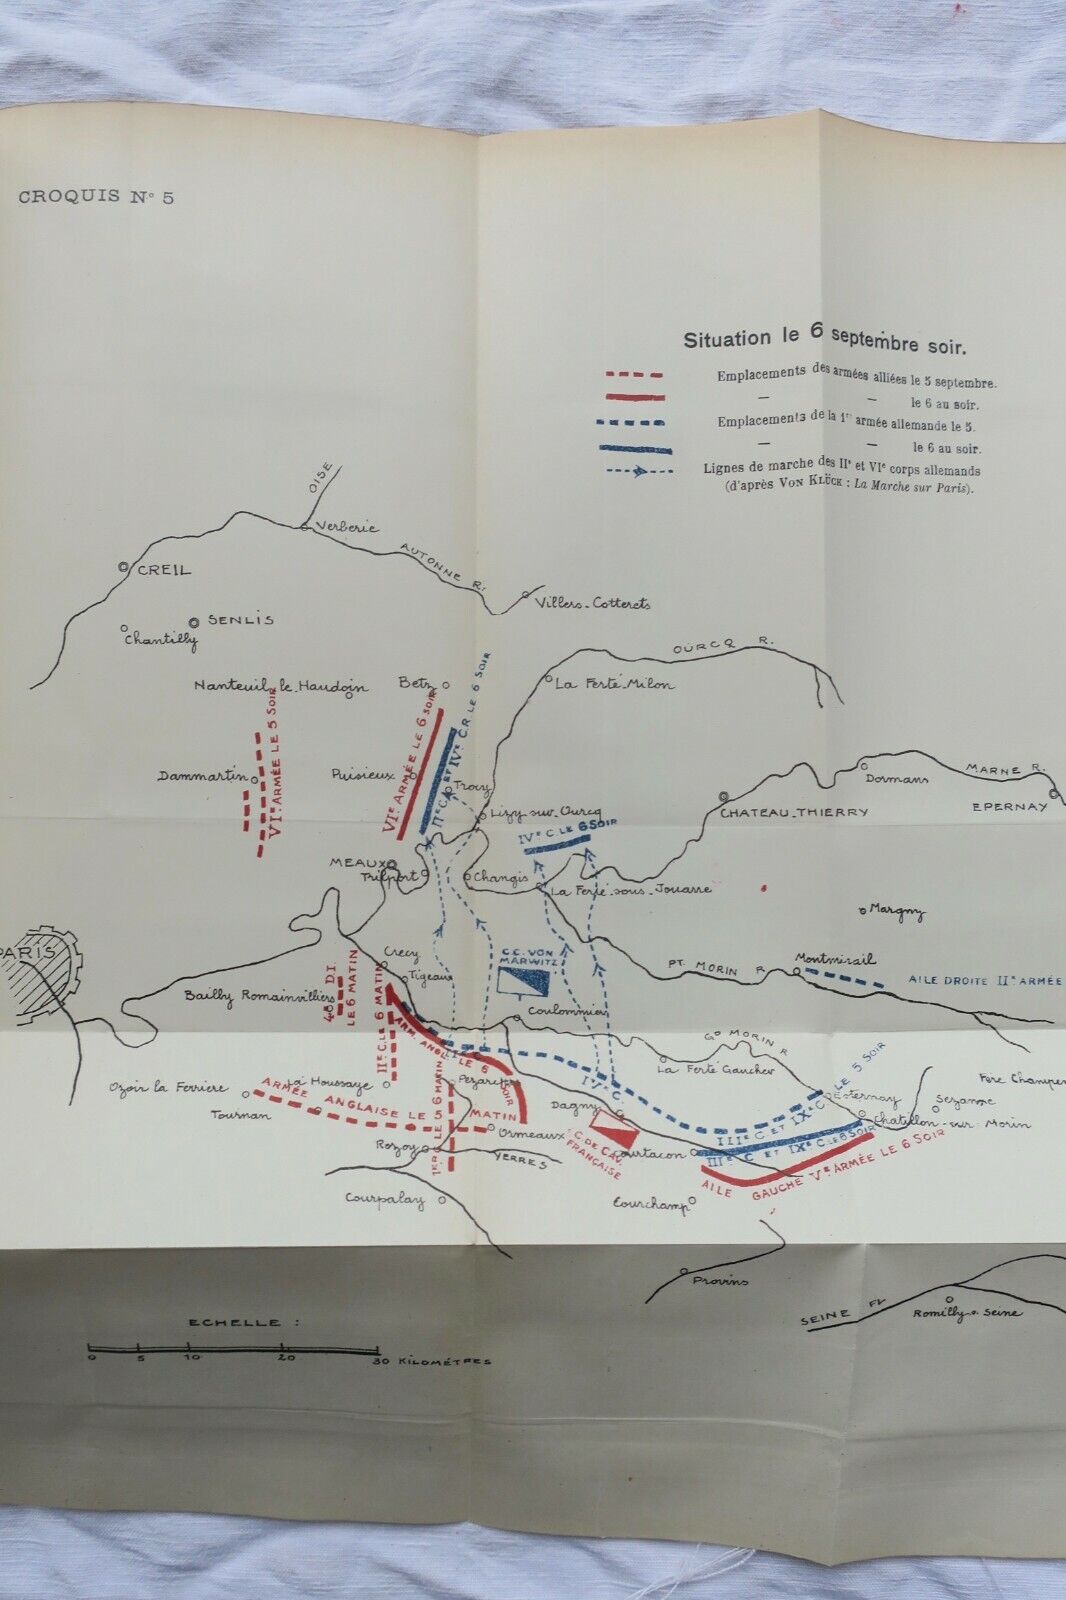 CROQUIS N° 5
Situation le 6 septembre soir.
Emplacements des armées alliées le 5 septembre.
— — le 6 au soir.
Emplacements de la 1re armée allemande le 5.
— — le 6 au soir.
Lignes de marche des IIe et VIe corps allemands
(d'après VON KLÜCK : La Marche sur Paris).
OISE
Verberie
AUTONNE R.
CREIL
Villers-Cotterets
SENLIS
Chantilly
OURCQ R.
Nanteuil-le-Haudoin
Betz
La Ferté-Milon
VIe ARMÉE LE 5 SOIR
VIe ARMÉE LE 6 SOIR
IIe C. et IVe C.R. LE 6 SOIR
Dammartin
Puisieux
Trocy
Dormans
MARNE R.
EPERNAY
CHATEAU-THIERRY
Lizy-sur-Ourcq
IVe C. LE 6 SOIR
MEAUX
Trilport
Changis
La Ferté-sous-Jouarre
Margny
PARIS
Crecy
Tigeaux
C.C. VON
MARWITZ
PT. MORIN R.
Montmirail
AILE DROITE IIe ARMÉE
4e DI.
LE 6 MATIN
Bailly Romainvilliers
IIe C. LE 6 MATIN
Coulommiers
GD MORIN R.
ARM. ANGL. LE 6 SOIR
La Ferté Gaucher
Ozoir la Ferrière
La Houssaye
Pezarches
IVe C.
Fère Champen
ARMÉE ANGLAISE LE 5
MATIN
Tournan
1er C. LE 6 MATIN
Ormeaux
Dagny
IIIe C ET IXe C. LE 5 SOIR
Esternay
Sezanne
Chatillon-sur-Morin
Rozoy
YERRES
C. DE CAV.
FRANÇAISE
Courtacon
IIIe C ET IXe C. LE 6 SOIR
AILE GAUCHE Ve ARMÉE LE 6 SOIR
Courpalay
Courchamp
Provins
SEINE FV
Romilly s. Seine
ECHELLE :
0 5 10 20 30 KILOMÉTRES